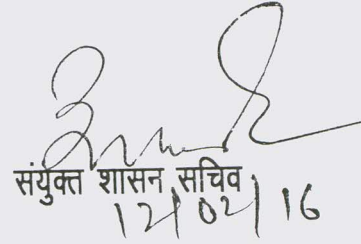 संयुक्त शासन सचिव
12/02/16